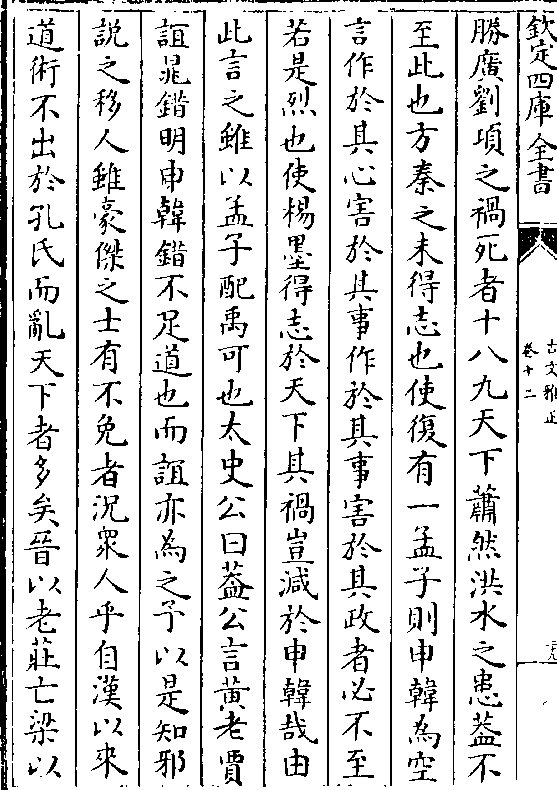 欽定四庫全書
古文雅正
卷十二
勝廣劉項之禍死者十八九天下蕭然洪水之患葢不
至此也方秦之未得志也使復有一孟子則申韓為空
言作於其心害於其事作於其事害於其政者必不至
若是烈也使楊墨得志於天下其禍豈減於申韓哉由
此言之雖以孟子配禹可也太史公曰葢公言黃老賈
誼鼂錯明申韓錯不足道也而誼亦為之予以是知邪
說之移人雖豪傑之士有不免者況衆人乎自漢以來
道術不出於孔氏而亂天下者多矣晉以老莊亡梁以